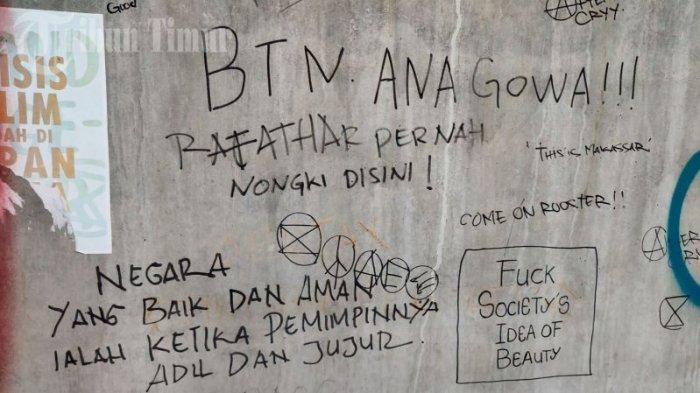 Good
Tribun Timur
CRYY.
ISIS
LIM
AH DI
PAN
BTN. ANA GOWA!!!
RAFATHAR PERNAH
NONGKI DISINI!
'THIS IS MAKASSAR'
COME ON ROOSTER!!
NEGARA
YANG BAIK DAN AMAN
IALAH KETIKA PEMIMPINNYA
ADIL DAN JUJUR.
FUCK
SOCIETY'S
IDEA OF
BEAUTY